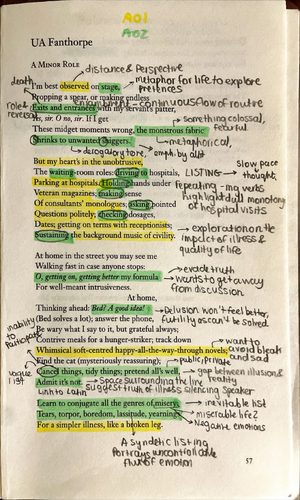 AO1
AO2
UA Fanthorpe
distance & perspective
A MINOR ROLE
death
I'm best observed on stage,
metaphor for life to explore
pretences
Propping a spear, or making endless
enjambment - continuous flow of routine
role reversal
Exits and entrances with my servant's patter,
Yes, sir. O no, sir. If I get
something colossal,
fearful
These midget moments wrong, the monstrous fabric
Shrinks to unwanted sniggers.
metaphorical,
derogatory tone, emph. by allit
But my heart's in the unobtrusive,
slow pace
The waiting-room roles: driving to hospitals,
LISTING → thoughts,
Parking at hospitals. Holding hands under
repeating -ing verbs
Veteran magazines; making sense
highlight dull monotony
Of consultants' monologues; asking pointed
of hospital visits
Questions politely; checking dosages,
Dates; getting on terms with receptionists;
exploration on the
Sustaining the background music of civility.
impact of illness &
quality of life
At home in the street you may see me
Walking fast in case anyone stops:
evade truth
O, getting on, getting better my formula
wants to get away
For well-meant intrusiveness.
from discussion
At home,
Thinking ahead: Bed? A good idea!
Delusion won't feel better,
inability to participate
(Bed solves a lot); answer the phone,
futility as can't be solved.
Be wary what I say to it, but grateful always;
Contrive meals for a hunger-striker; track down
want to
Whimsical soft-centred happy-all-the-way-through novels;
avoid bleak
and sad
Find the cat (mysteriously reassuring);
public, private
Cancel things, tidy things; pretend all's well,
gap between illusion &
reality
vague list
Admit it's not.
Space surrounding the line
link to Latin
suggest truth of illness silencing speaker
Learn to conjugate all the genres of misery,
inevitable list
Tears, torpor, boredom, lassitude, yearning
miserable life?
For a simpler illness, like a broken leg.
Negative emotions
Asyndetic listing
Portrays uncontrollable
flux of emotion
57